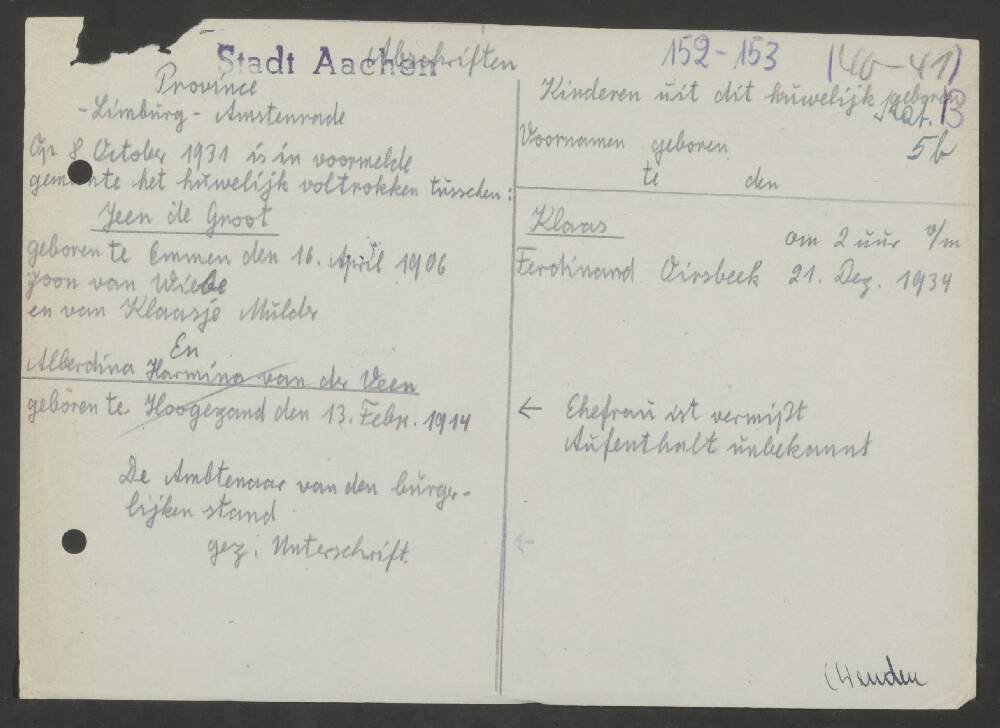 Stadt Aachen
Abschriften
152-153
(40-41)
Province
-Limburg- Amstenrade
Op 8 October 1931 is in voormelde
gemeente het huwelijk voltrokken tusschen:
Jeen de Groot
geboren te Emmen den 16. April 1906
zoon van Wiebe
en van Klaasje Mulder
En
Alberdina Harmina van der Veen
geboren te Hoogezand den 13. Febr. 1914
De Ambtenaar van den burger-
lijken stand
gez. Unterschrift.
Kinderen uit dit huwelijk geboren
Kat. 13
5b
Voornamen geboren
te den
Klaas om 2 uur v/m
Ferdinand Oirsbeek 21. Dez. 1934
← Ehefrau ist vermißt
Aufenthalt unbekannt
←
Wenden